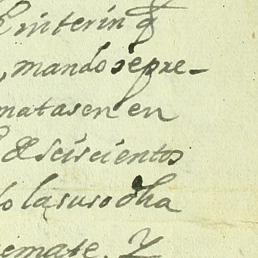 interin q
, mando se pre-
matasen en
de seiscientos
lo la suso dha
remate. Y